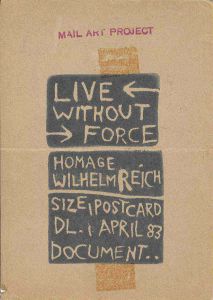 MAIL ART PROJECT
LIVE ←
WITHOUT
→ FORCE
HOMAGE
WILHELM REICH
SIZE; POSTCARD
DL. ; APRIL 83
DOCUMENT..